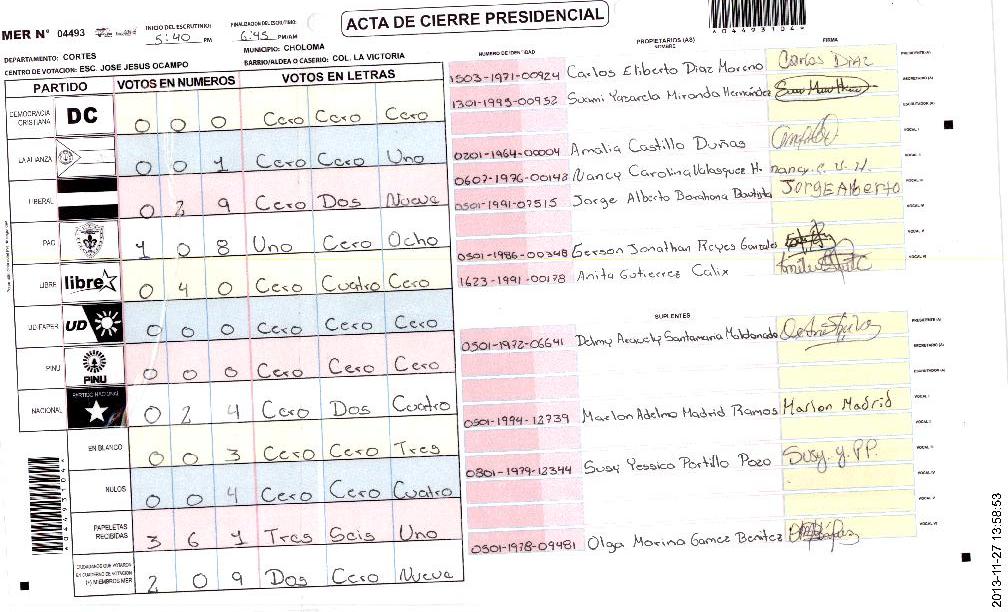 ACTA DE CIERRE PRESIDENCIAL
MER N° 04493
INICIO DEL ESCRUTINIO: 5:40 PM
FINALIZACION DEL ESCRUTINIO: 6:45 PM/AM
DEPARTAMENTO: CORTES
MUNICIPIO: CHOLOMA
CENTRO DE VOTACION: ESC. JOSE JESUS OCAMPO
BARRIO/ALDEA O CASERIO: COL. LA VICTORIA
PARTIDO VOTOS EN NUMEROS VOTOS EN LETRAS
DEMOCRACIA CRISTIANA DC 0 0 0 Cero Cero Cero
LA ALIANZA 0 0 1 Cero Cero Uno
LIBERAL 0 2 9 Cero Dos Nueve
PAC 1 0 8 Uno Cero Ocho
LIBRE libre 0 4 0 Cero Cuatro Cero
UD-FAPER UD 0 0 0 Cero Cero Cero
PINU PINU 0 0 0 Cero Cero Cero
NACIONAL PARTIDO NACIONAL 0 2 4 Cero Dos Cuatro
EN BLANCO 0 0 3 Cero Cero Tres
NULOS 0 0 4 Cero Cero Cuatro
PAPELETAS RECIBIDAS 3 6 1 Tres Seis Uno
CIUDADANOS QUE VOTARON EN CUADERNO DE VOTACION (+) MIEMBROS MER 2 0 9 Dos Cero Nueve
PROPIETARIOS (AS)
NUMERO DE IDENTIDAD NOMBRE FIRMA
1503-1971-00924 Carlos Eliberto Diaz Moreno Carlos DIAZ PRESIDENTE (A)
1301-1995-00952 Suami Yazarela Miranda Hernández SECRETARIO (A)
ESCRUTADOR (A)
0201-1964-00004 Amalia Castillo Duñas VOCAL I
0607-1976-00148 Nancy Carolina Velasquez H. nancy. C. V. H. VOCAL II
0501-1991-07515 Jorge Alberto Barahona Bautista JORGE AlberTO VOCAL III
VOCAL IV
0501-1986-00348 Gerson Jonathan Reyes Gonzales VOCAL V
1623-1991-00178 Anita Gutierrez Calix VOCAL VI
SUPLENTES
0501-1972-06641 Delmy Aracely Santamaria Maldonado PRESIDENTE (A)
SECRETARIO (A)
ESCRUTADOR (A)
0501-1994-12739 Marlon Adelmo Madrid Ramos Marlon Madrid VOCAL I
VOCAL II
0801-1979-12344 Susy Yessica Portillo Pozo Susy. y. P.P. VOCAL III
VOCAL IV
VOCAL V
0501-1978-09481 Olga Marina Gamez Benitez VOCAL VI
*044931041*
2013-11-27 13:58:53